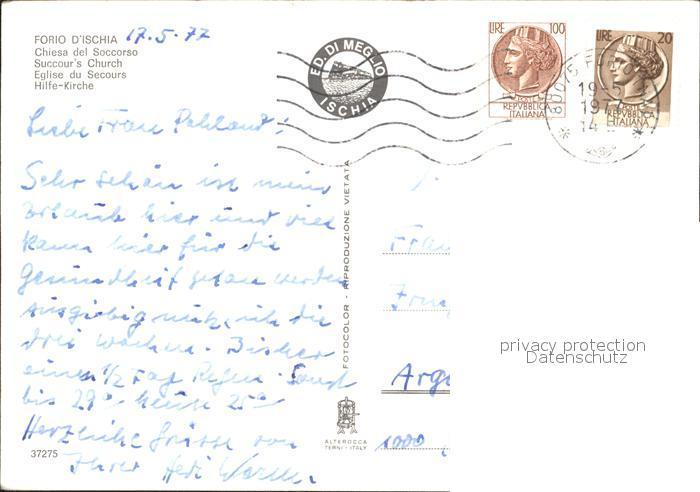 FORIO D'ISCHIA
Chiesa del Soccorso
Succour's Church
Eglise du Secours
Hilfe-Kirche
17.5.77
ED. DI MEGLIO
ISCHIA
LIRE 100
REPVBBLICA
ITALIANA
LIRE 20
REPVBBLICA
ITALIANA
80075 FORIO
19-5
197
14
Liebe Frau
Sehr schön ist mein
Urlaub hier und viel
kann hier für die
Gesundheit getan werden
Ausgiebig nutze ich die
drei Wochen. Bisher
einen 1/2 Tag Regen. Sonst
bis 29° heute 25°
Herzliche Grüsse von
Ihrer Hedi
FOTOCOLOR - RIPRODUZIONE VIETATA
Frau
1000
ALTEROCCA
TERNI - ITALY
37275
privacy protection
Datenschutz